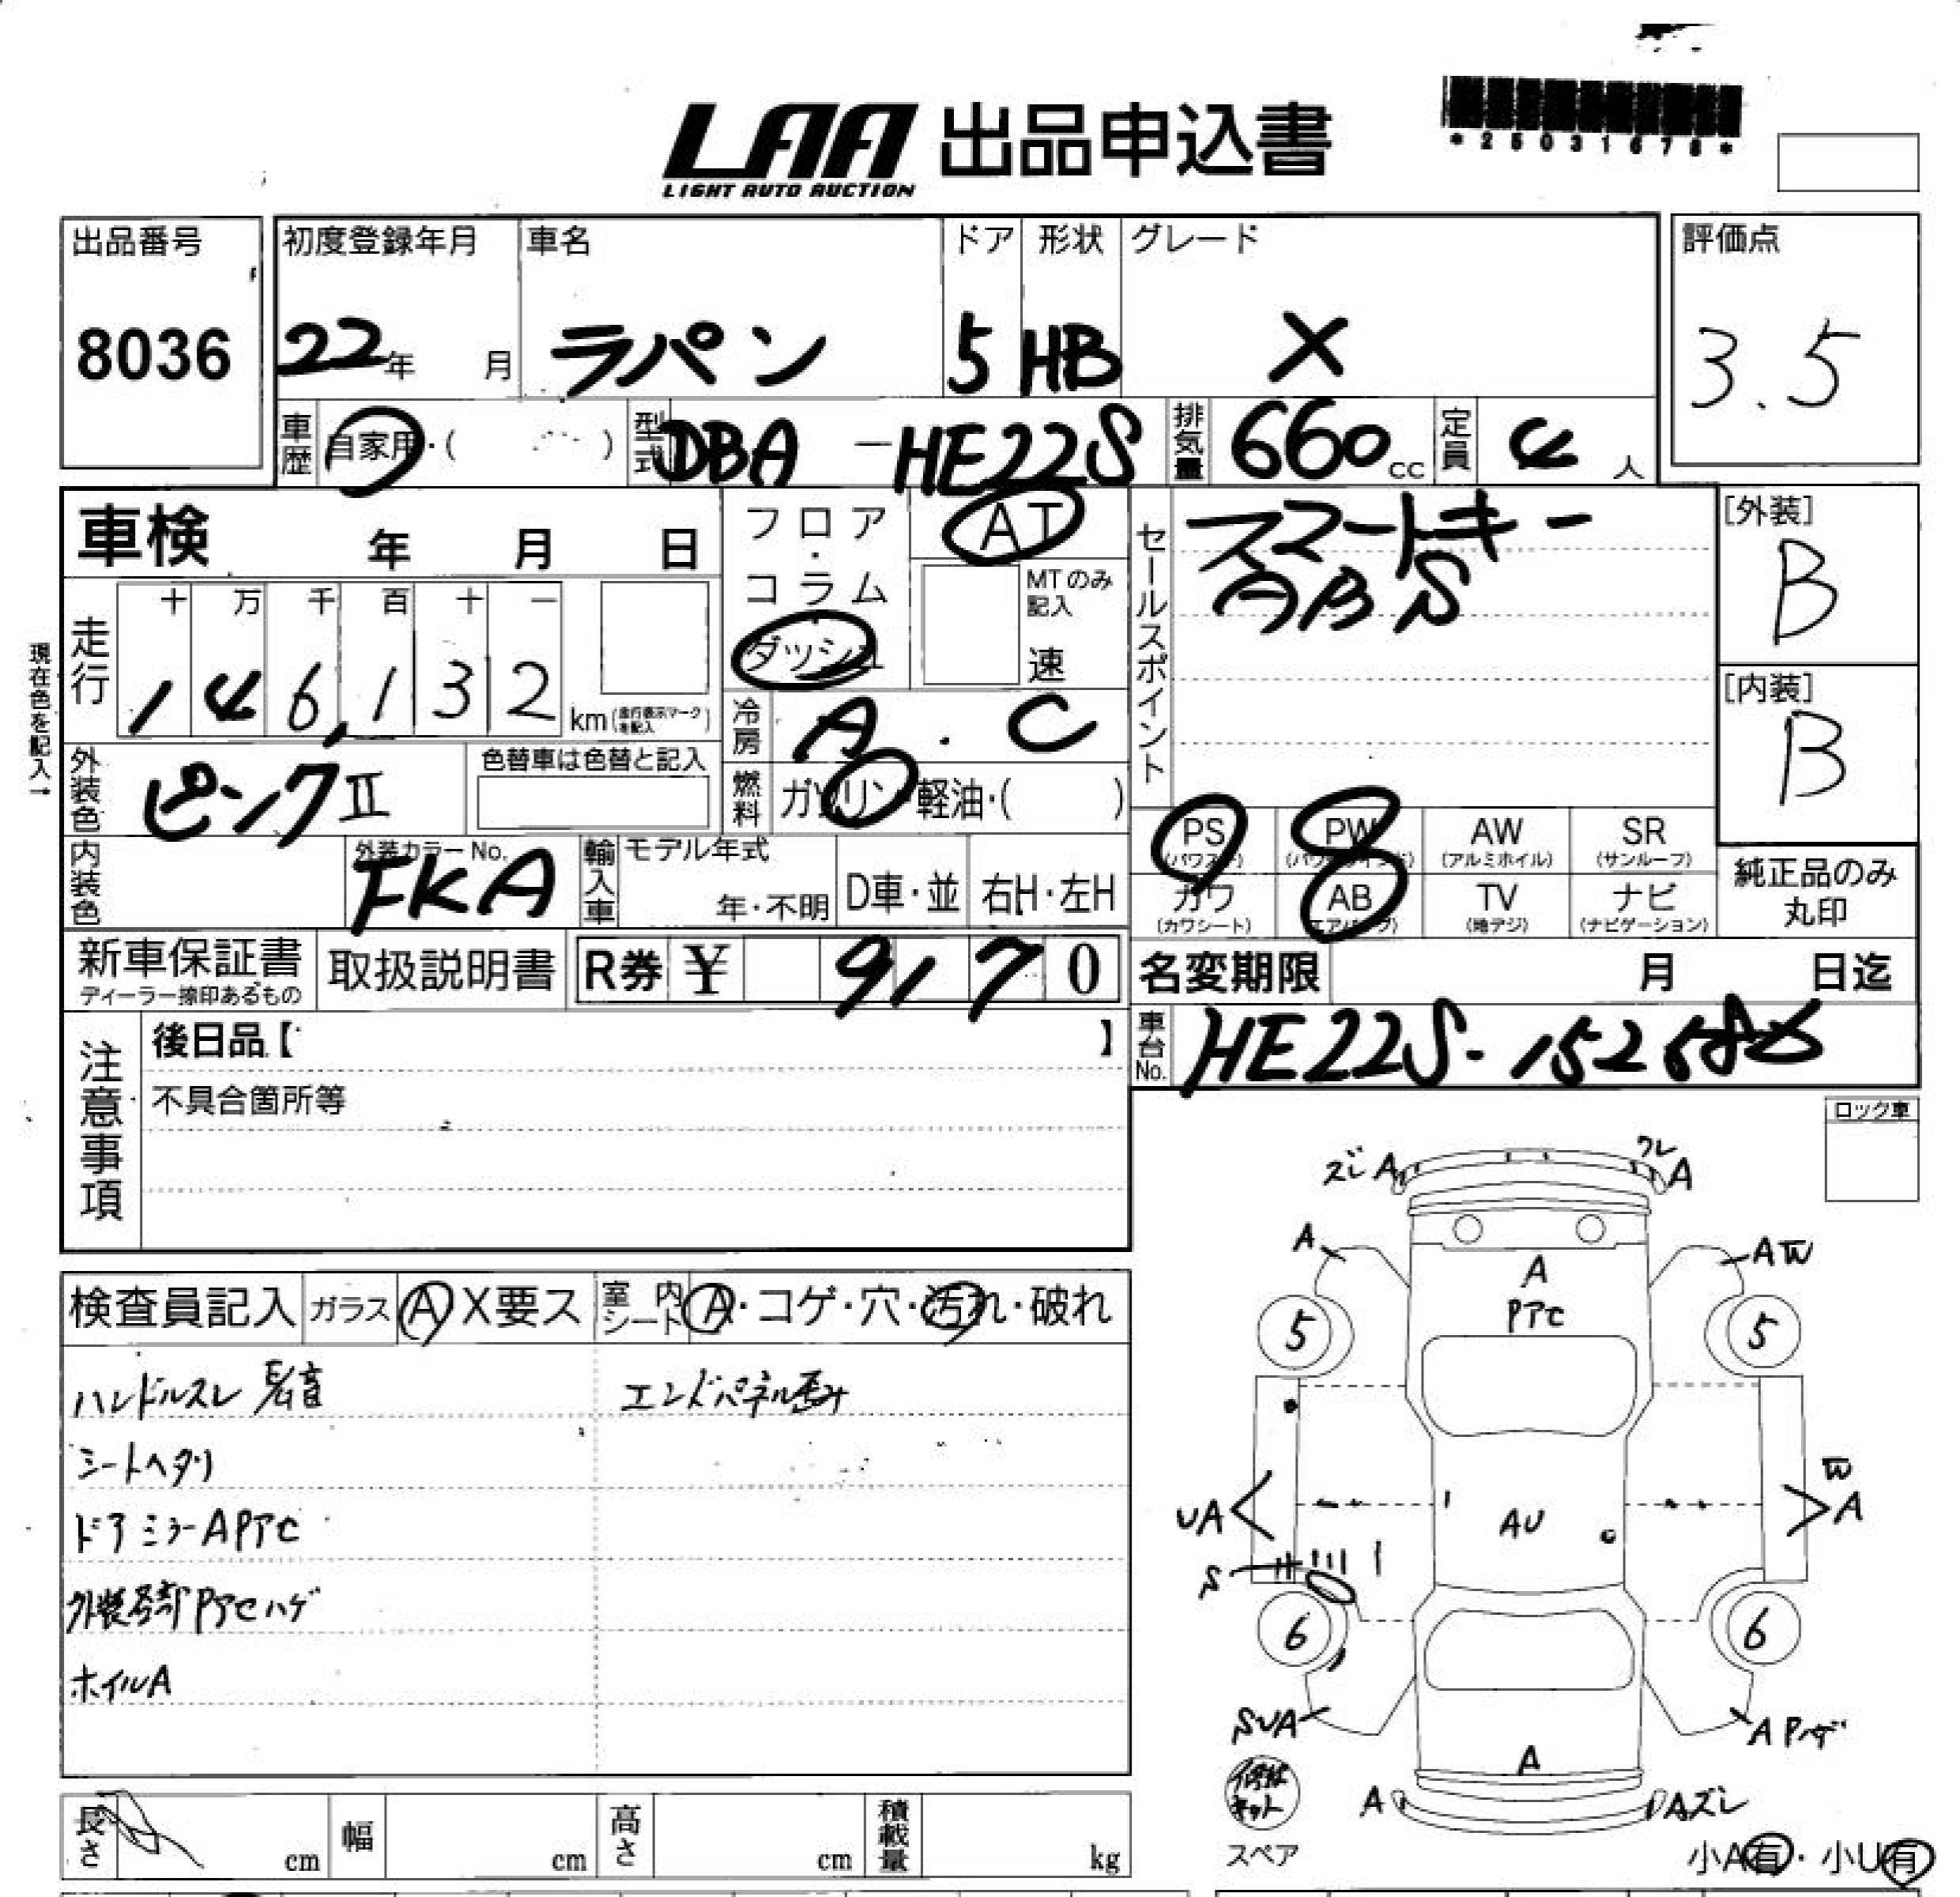 LAA 出品申込書
LIGHT AUTO AUCTION
*25031678*
出品番号 初度登録年月 車名 ドア 形状 グレード 評価点
8036 22年 月 ラパン 5 HB X 3.5
車歴 自家用・( ) 型式 DBA-HE22S 排気量 660cc 定員 4人
車検 年 月 日 フロア・コラム・ダッシュ AT
MTのみ記入 速
セールスポイント スマートキー
ABS
[外装] B
[内装] B
現在色を記入→
走行 十 万 千 百 十 一
146,132 km(走行表示マークを記入)
冷房 A.C
外装色 ピンクII 色替車は色替と記入
燃料 ガソリン・軽油・( )
PS (パワステ) PW (パワーウインド) AW (アルミホイル) SR (サンルーフ)
カワ (カワシート) AB (エアバッグ) TV (地デジ) ナビ (ナビゲーション)
純正品のみ丸印
内装色 外装カラーNo. FKA 輸入車 モデル年式 年・不明 D車・並 右H・左H
新車保証書 ディーラー捺印あるもの 取扱説明書 R券 ¥ 9170
名変期限 月 日迄
車台No. HE22S-152586
注意事項 後日品【 】
不具合箇所等
ロック車
検査員記入 ガラス A X要ス 室内シート A・コゲ・穴・汚れ・破れ
ハンドルスレ 異音 エンドパネル歪み
シートヘタリ
ドアミラーAPTC
外装各部PTCハゲ
ホイルA
ズレA ワレA
A AW
A
PTC
5 5
UA AU W A
S
6 6
SUA APハゲ
A
A Aズレ
修理キット
スペア
小A有・小U有
長さ cm 幅 cm 高さ cm 積載量 kg